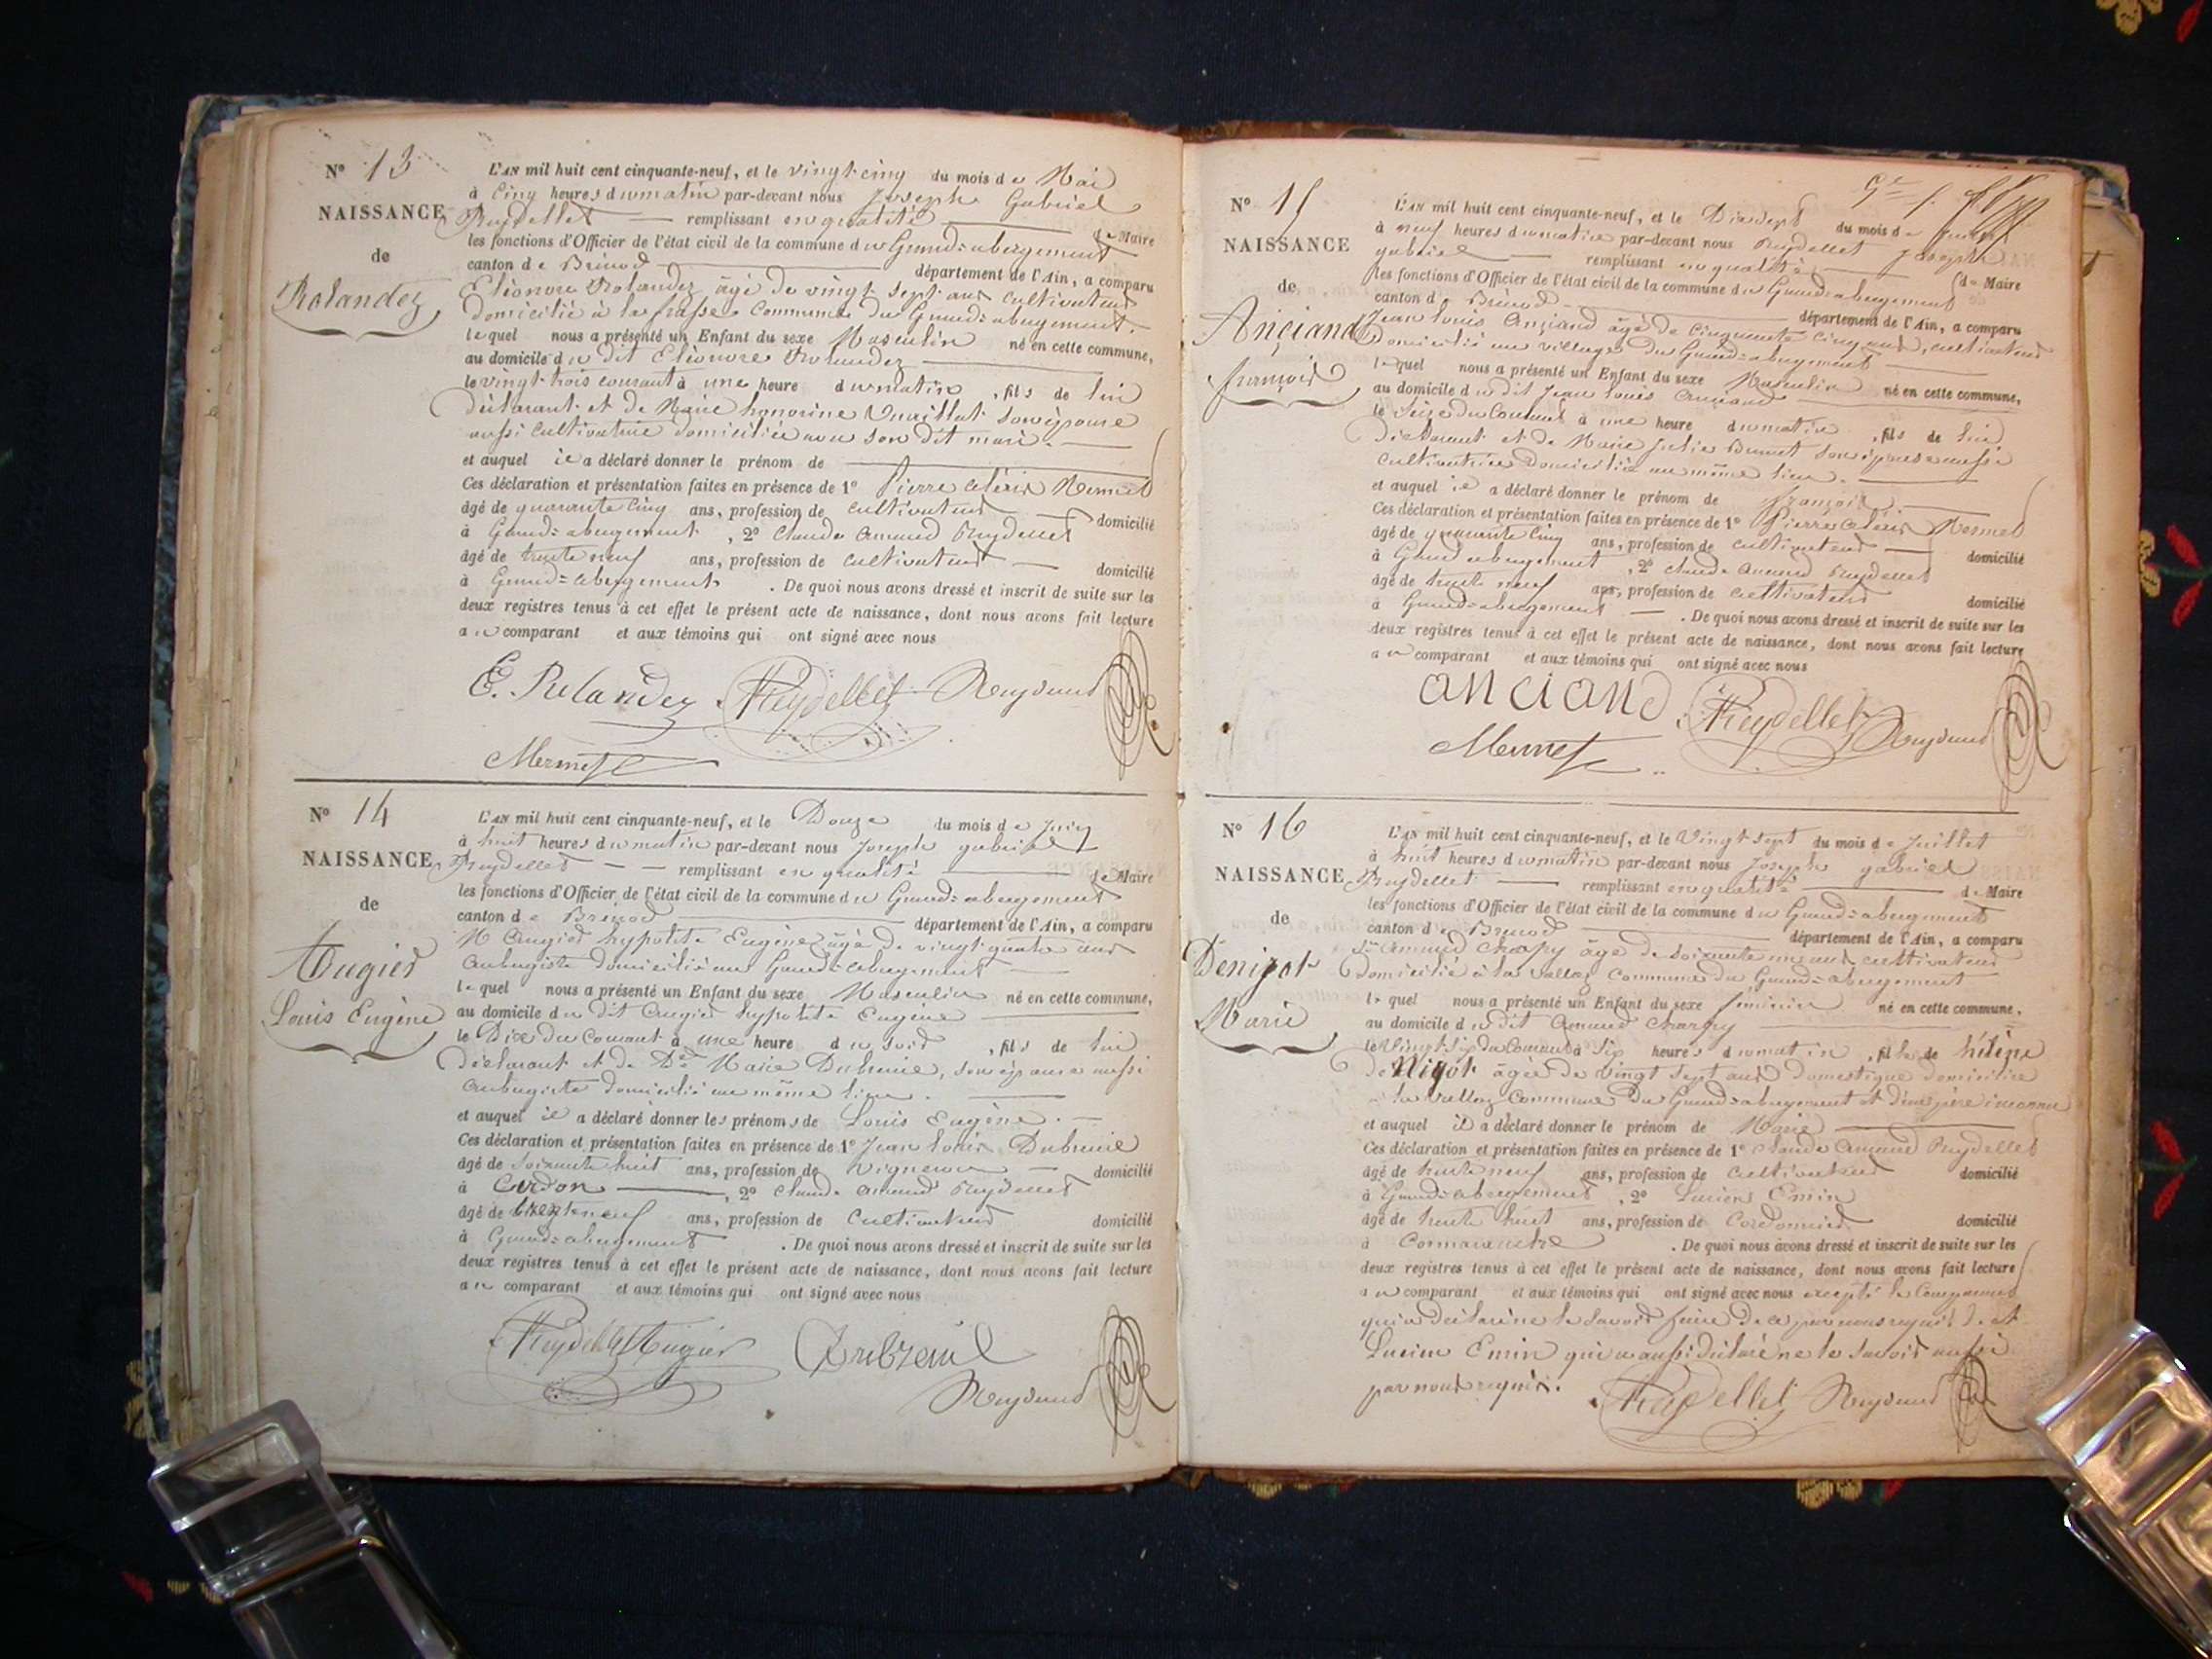 N° 13
NAISSANCE
de
Rolandez
L'AN mil huit cent cinquante-neuf, et le vingt-cinq du mois de Mai
à cinq heures du matin par-devant nous Joseph Gabriel
Reydellet remplissant en qualité de Maire
les fonctions d'Officier de l'état civil de la commune du Grand-abergement
canton de Brénod département de l'Ain, a comparu
Eléonore Rolandez âgé de vingt sept ans cultivateur
domicilié à la commune du Grand-abergement.
lequel nous a présenté un Enfant du sexe Masculin né en cette commune,
au domicile du dit Eléonore Rolandez
le vingt-trois courant à une heure du matin, fils de lui
déclarant et de Marie honorine son épouse
aussi cultivatrice domiciliée avec son dit mari.
et auquel il a déclaré donner le prénom de
Ces déclaration et présentation faites en présence de 1° Pierre Mermet
âgé de quarante cinq ans, profession de cultivateur domicilié
à Grand-abergement, 2° Claude Armand Reydellet
âgé de trente neuf ans, profession de cultivateur domicilié
à Grand-abergement. De quoi nous avons dressé et inscrit de suite sur les
deux registres tenus à cet effet le présent acte de naissance, dont nous avons fait lecture
au comparant et aux témoins qui ont signé avec nous
E. Rolandez Reydellet
Mermet
N° 14
NAISSANCE
de
Augier
Louis Eugène
L'AN mil huit cent cinquante-neuf, et le Douze du mois de Juin
à huit heures du matin par-devant nous Joseph gabriel
Reydellet remplissant en qualité de Maire
les fonctions d'Officier de l'état civil de la commune du Grand-abergement
canton de Brénod département de l'Ain, a comparu
M Augier hypolite Eugène âgé de vingt quatre ans
aubergiste domicilié au Grand-abergement
lequel nous a présenté un Enfant du sexe Masculin né en cette commune,
au domicile du dit Augier hypolite Eugène
le Dix du courant à une heure du soir, fils de lui
déclarant et de De Marie Dubreuil, son épouse aussi
aubergiste domicilié au même lieu.
et auquel il a déclaré donner les prénoms de Louis Eugène.
Ces déclaration et présentation faites en présence de 1° Jean louis Dubreuil
âgé de soixante huit ans, profession de vigneron domicilié
à Cerdon, 2° Claude Armand Reydellet
âgé de trente neuf ans, profession de cultivateur domicilié
à Grand-abergement. De quoi nous avons dressé et inscrit de suite sur les
deux registres tenus à cet effet le présent acte de naissance, dont nous avons fait lecture
au comparant et aux témoins qui ont signé avec nous
Reydellet Augier Dubreuil
N° 15
NAISSANCE
de
Anciand
françois
L'AN mil huit cent cinquante-neuf, et le Dix sept du mois de
à neuf heures du matin par-devant nous Reydellet Joseph
gabriel remplissant en qualité de Maire
les fonctions d'Officier de l'état civil de la commune du Grand-abergement
canton de Brénod département de l'Ain, a comparu
Jean louis Anciand âgé de cinquante cinq ans, cultivateur
domicilié au village du Grand-abergement
lequel nous a présenté un Enfant du sexe Masculin né en cette commune,
au domicile du dit Jean louis Anciand
le seize du courant à une heure du matin, fils de lui
déclarant et de Marie Julie son épouse aussi
cultivatrice domiciliée au même lieu.
et auquel il a déclaré donner le prénom de françois.
Ces déclaration et présentation faites en présence de 1° Pierre Mermet
âgé de quarante cinq ans, profession de cultivateur domicilié
à Grand abergement, 2° Claude Armand Reydellet
âgé de trente neuf ans, profession de cultivateur domicilié
à Grand-abergement. De quoi nous avons dressé et inscrit de suite sur les
deux registres tenus à cet effet le présent acte de naissance, dont nous avons fait lecture
au comparant et aux témoins qui ont signé avec nous
anciand Reydellet
Mermet
N° 16
NAISSANCE
de
Denigot
Marie
L'AN mil huit cent cinquante-neuf, et le Vingt sept du mois de Juillet
à huit heures du matin par-devant nous Joseph gabriel
Reydellet remplissant en qualité de Maire
les fonctions d'Officier de l'état civil de la commune du Grand-abergement
canton de Brénod département de l'Ain, a comparu
Sr Armand Charpy âgé de soixante ans cultivateur
domicilié à la commune du Grand-abergement
lequel nous a présenté un Enfant du sexe féminin né en cette commune,
au domicile du dit Armand Charpy
le Vingt six du courant à six heures du matin, fille de hélène
deNigot âgée de vingt sept ans domestique domiciliée
à la commune du Grand-abergement et d'un père inconnu
et auquel il a déclaré donner le prénom de Marie
Ces déclaration et présentation faites en présence de 1° Claude Armand Reydellet
âgé de trente neuf ans, profession de cultivateur domicilié
à Grand-abergement, 2° Lucien Emin
âgé de trente huit ans, profession de Cordonnier domicilié
à Cormaranche. De quoi nous avons dressé et inscrit de suite sur les
deux registres tenus à cet effet le présent acte de naissance, dont nous avons fait lecture
au comparant et aux témoins qui ont signé avec nous excepté le Comparant
qui a déclaré ne le savoir faire de ce par nous requis et
Lucien Emin qui a aussi déclaré ne le savoir aussi
par nous requis.
Reydellet